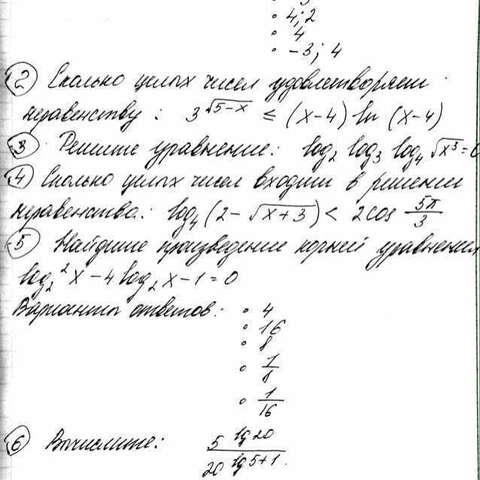 • 4; 2
• 4
• -3; 4
② Сколько целых чисел удовлетворяет
неравенству: 3^√(5-x) ≤ (x-4) ln (x-4)
③ Решите уравнение: log₂ log₃ log₄ √x³ = 0
④ Сколько целых чисел входит в решение
неравенства: log₄ (2 - √(x+3)) < 2cos 5π/3
⑤ Найдите произведение корней уравнения
log₂² x - 4 log₂ x - 1 = 0
Варианты ответов: • 4
• 16
• 8
• 1/8
• 1/16
⑥ Вычислите: 5^lg20 / 20^lg5+1.